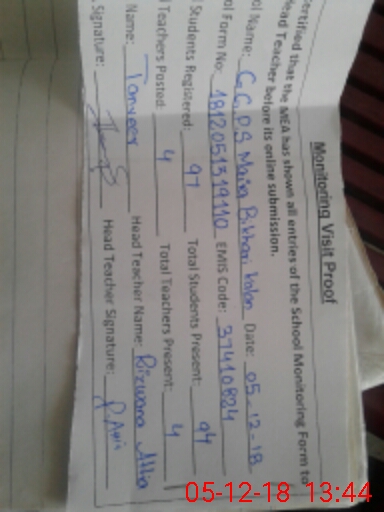 Monitoring Visit Proof
ertified that the MEA has shown all entries of the School Monitoring Form to
Head Teacher before its online submission.
ol Name: G.G.P.S Maira Bikhari kalan Date: 05-12-18
ol Form No: 1812051319110 EMIS Code: 37410824
Students Registered: 97 Total Students Present: 94
Teachers Posted: 4 Total Teachers Present: 4
Name: Tanveer Head Teacher Name: Rizwana Attia
Signature: Head Teacher Signature:
05-12-18 13:44